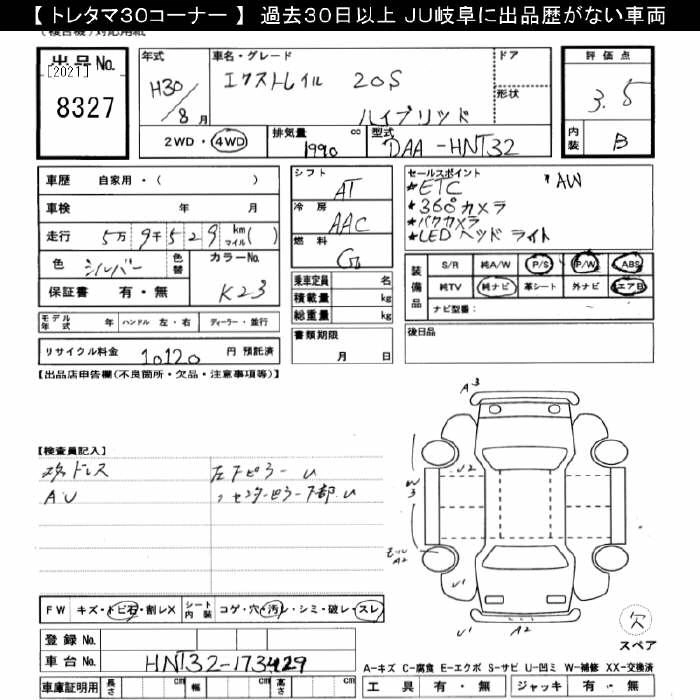 【 トレタマ30コーナー 】 過去30日以上 JU岐阜に出品歴がない車両
出品No.
[2021]
8327
年式
H30/8月
車名・グレード
エクストレイル 20S
ハイブリッド
ドア
形状
評価点
3.5
内装
B
2WD・4WD
排気量
1990 cc
型式
DAA-HNT32
車歴 自家用・( )
車検 年 月
走行 5万9千529 km マイル( )
色 シルバー
色替
カラーNo.
K23
保証書 有・無
シフト
AT
冷房
AAC
燃料
G
乗車定員 名
積載量 kg
総重量 kg
セールスポイント
★ETC
AW
★360°カメラ
★バックカメラ
★LED ヘッドライト
装備品
S/R 純A/W P/S P/W ABS
純TV 純ナビ 革シート 外ナビ エアB
ナビ型番:
モデル年式 年 ハンドル 左・右 ディーラー・並行
リサイクル料金 10120 円 預託済
書類期限
月 日
後日品
【出品店申告欄(不良箇所・欠品・注意事項等)】
【検査員記入】
A.U
左FピラーU
〃センターピラー下部U
A3
U2
W3
A2
U1
U1
A2
FW キズ・トビ石・割レX
シート内装 コゲ・穴・汚レ・シミ・破レ・スレ
欠
スペア
登録No.
車台No. HNT32-173429
車庫証明用 長さ cm 幅 cm 高さ cm
A-キズ C-腐食 E-エクボ S-サビ U-凹ミ W-補修 XX-交換済
工具 有・無 ジャッキ 有・無